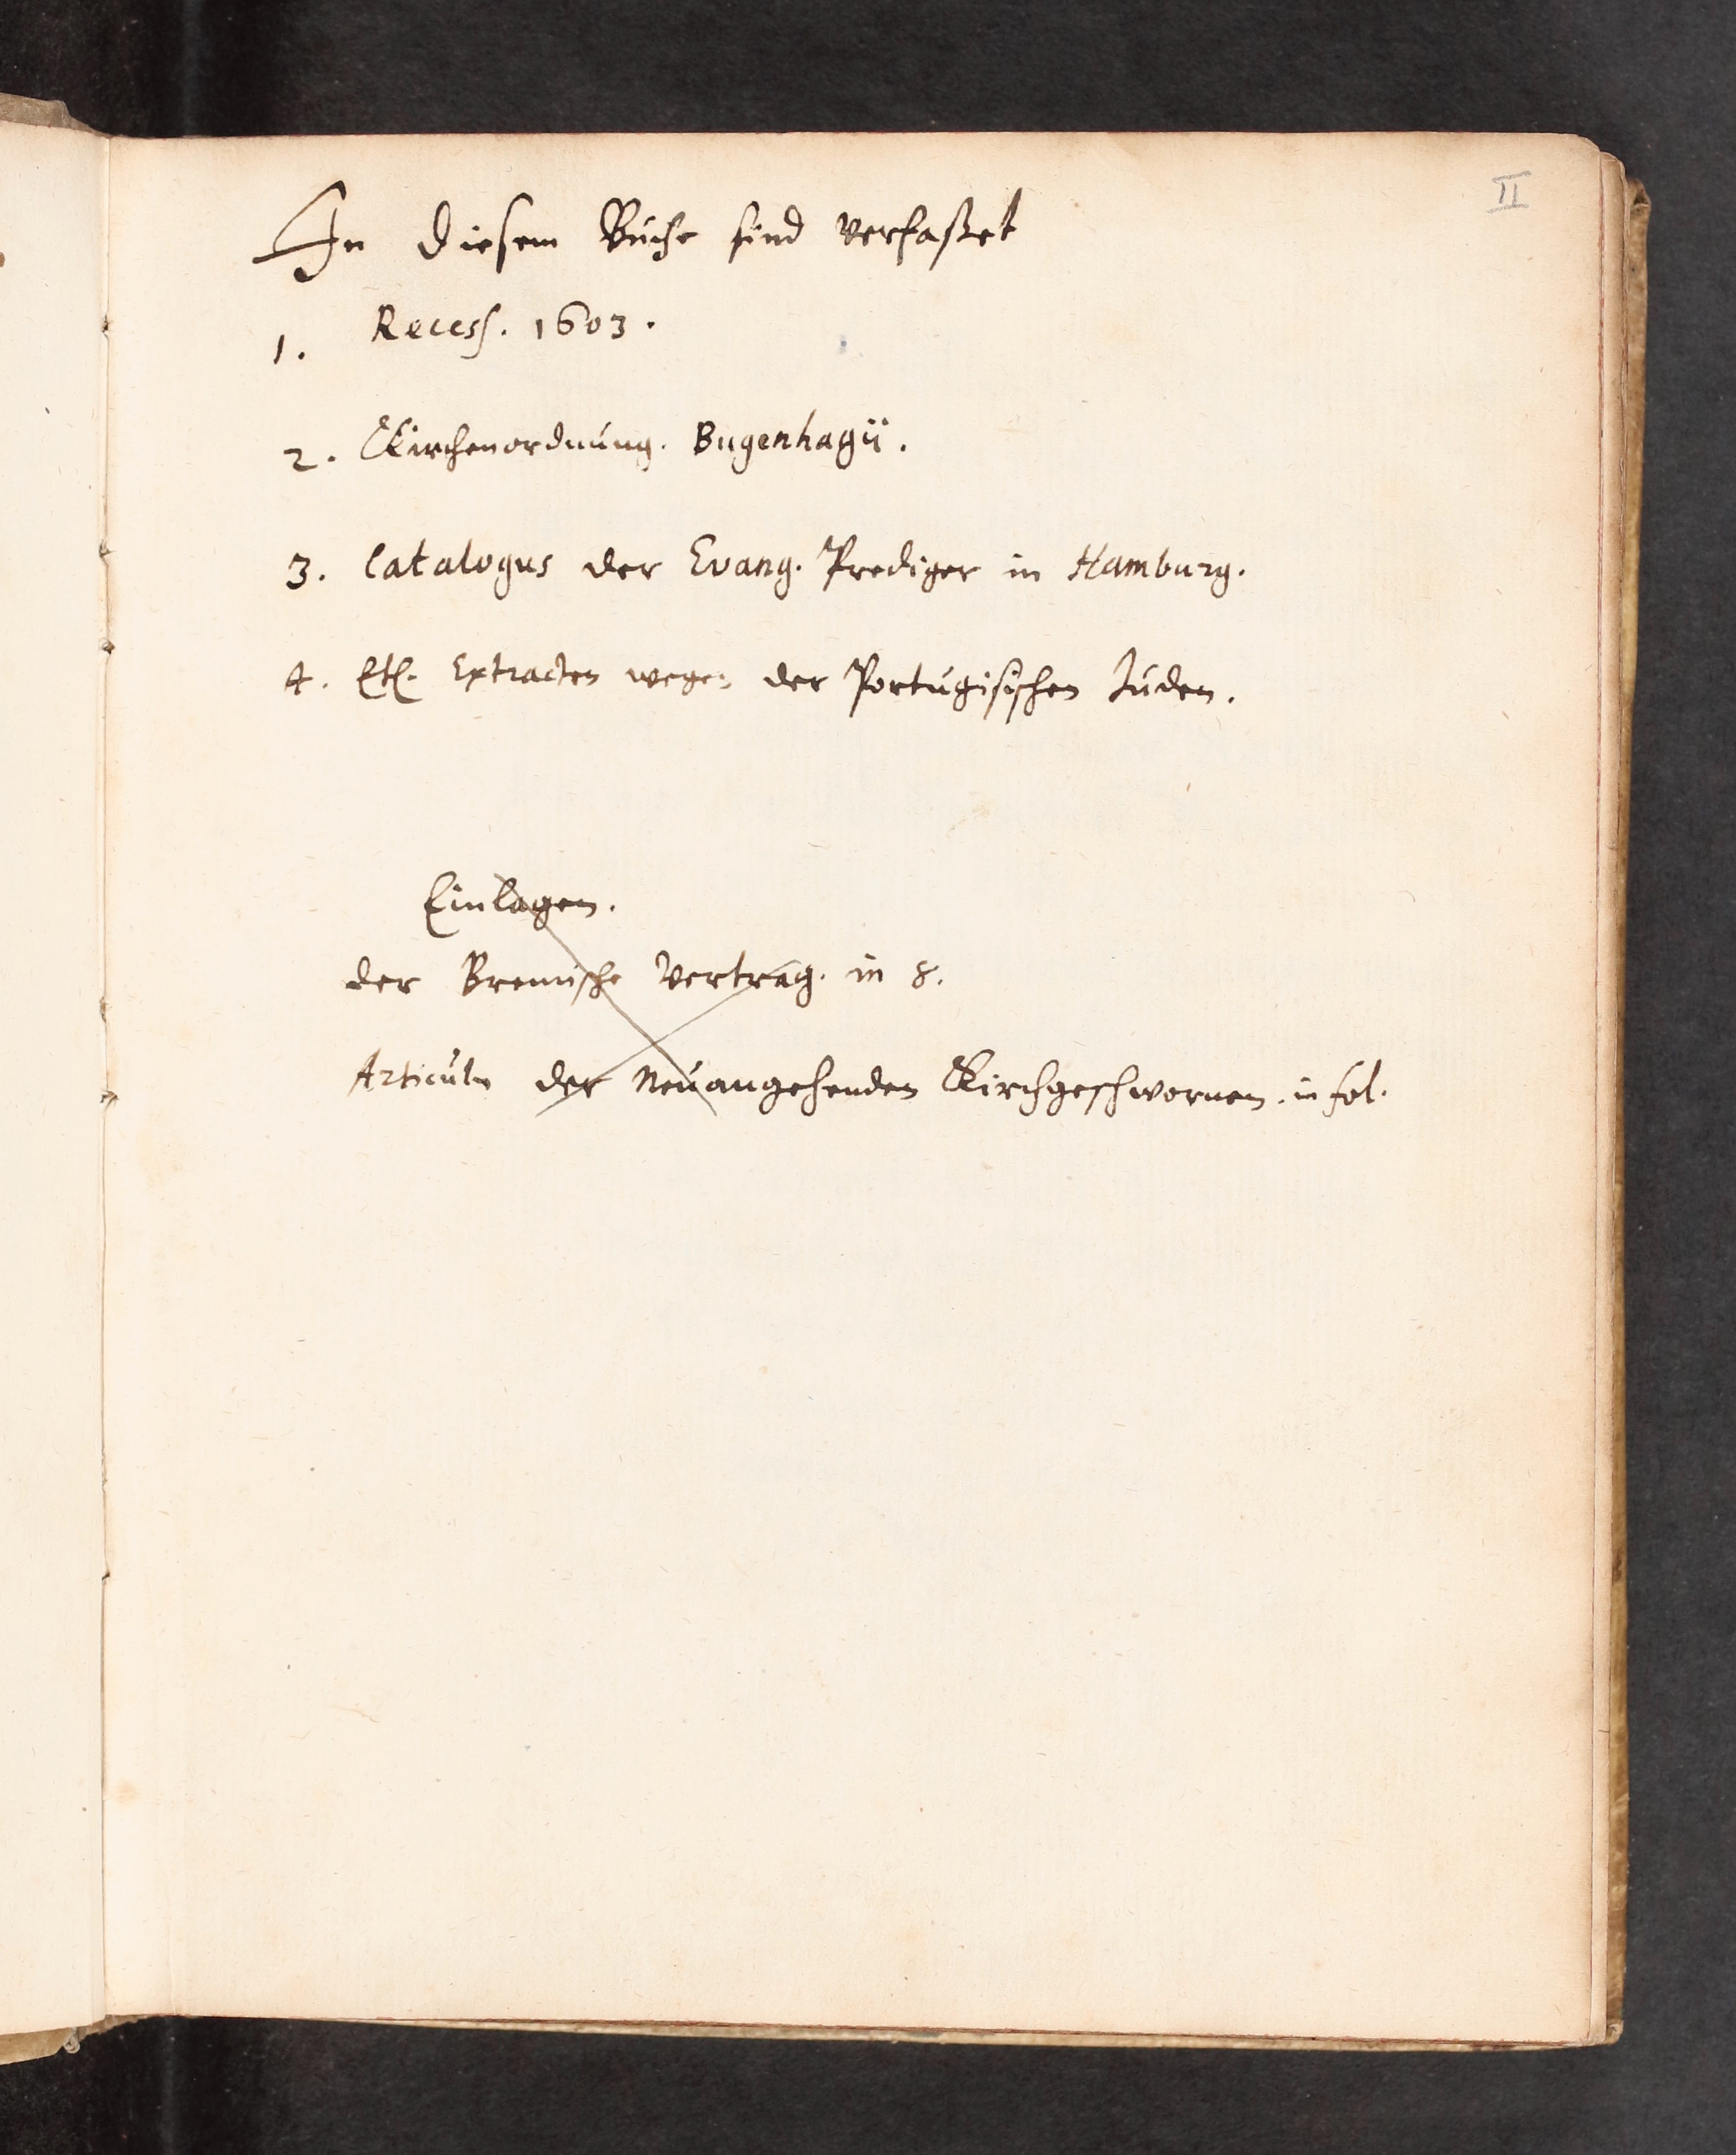 II
In diesem Buche sind verfaßet
1. Recess. 1603.
2. Kirchenordnung. Bugenhagii.
3. Catalogus der Evang. Prediger in Hamburg.
4. Etl. Extracten wegen der Portugisischen Juden.
Einlagen.
der Bremische Vertrag. in 8.
Articuln der Neuangehenden Kirchgeschwornen. in fol.